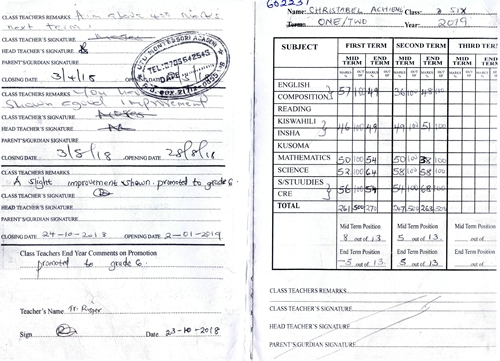 CLASS TEACHERS REMARKS Aim above 400 marks
next term.
CLASS TEACHER'S SIGNATURE
HEAD TEACHER'S SIGNATURE
PARENT'S/GURDIAN SIGNATURE
CLOSING DATE 3/4/18
CLASS TEACHERS REMARKS You have
shown good improvement
CLASS TEACHER'S SIGNATURE
HEAD TEACHER'S SIGNATURE
PARENT'S/GURDIAN SIGNATURE
CLOSING DATE 3/8/18 OPENING DATE 28/8/18
CLASS TEACHERS REMARKS
A slight improvement shown. promoted to grade 6.
CLASS TEACHER'S SIGNATURE
HEAD TEACHER'S SIGNATURE
PARENT'S/GURDIAN SIGNATURE
CLOSING DATE 24-10-2018 OPENING DATE 2-01-2019
Class Teachers End Year Comments on Promotion
promoted to grade 6.
Teacher's Name Tr. Risper
Sign Date 23-10-2018
MONTESSORI ACADEMY
DATE
602237
Name: CHRISTABEL ACHIENG Class: SIX
Term: ONE/TWO Year: 2019
SUBJECT FIRST TERM SECOND TERM THIRD TERM
MID TERM END TERM MID TERM END TERM MID TERM
MARKS OUT OF MARKS OUT OF MARKS OUT OF MARKS OUT OF
ENGLISH
COMPOSITION 57 100 49 36 100 48 100
READING
KISWAHILI
INSHA 46 100 49 49 100 51 100
KUSOMA
MATHEMATICS 50 100 54 50 100 38 100
SCIENCE 52 100 64 58 100 58 100
S/STUUDIES
CRE 56 100 54 54 100 68 100
TOTAL 261 500 270 247 500 263 500
Mid Term Position Mid Term Position Mid Term Position
8 out of 13 5 out of 13 out of
End Term Position End Term Position End Term Position
5 out of 13. 5 out of 13. out of
CLASS TEACHERS REMARKS
CLASS TEACHER'S SIGNATURE
HEAD TEACHER'S SIGNATURE
PARENT'S/GURDIAN SIGNATURE